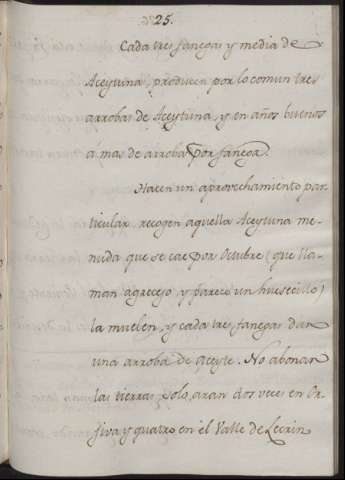 25.
Cada tres fanegas y media de
Aceytuna, producen por lo comun tres
arrobas de Aceytuna, y en años buenos
á mas de arroba por fanega.
Hacen un aprovechamiento par-
ticular, recogen aquella Aceytuna me-
nuda que se cae por Octubre (que lla-
man agracejo y parece un huesecillo)
la muelen, y cada tres fanegas dan
una arroba de Aceyte. No abonan
las tierras, solo aran dos veces en Or-
jiva y quatro en el Valle de Lecrin